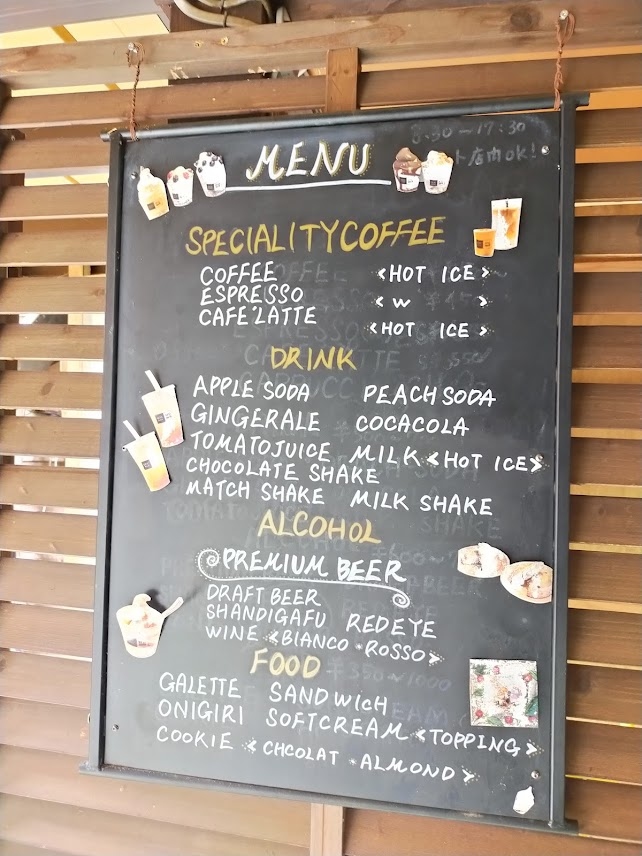 8:30～17:30
店内OK!
MENU
SPECIALITY COFFEE
COFFEE <HOT ICE>
ESPRESSO <W >
CAFE'LATTE <HOT ICE>
DRINK
APPLE SODA PEACH SODA
GINGERALE COCACOLA
TOMATOJUICE MILK <HOT ICE>
CHOCOLATE SHAKE
MATCH SHAKE MILK SHAKE
ALCOHOL
PREMIUM BEER
DRAFT BEER
SHANDIGAFU REDEYE
WINE <BIANCO * ROSSO>
FOOD
GALETTE SANDWICH
ONIGIRI SOFTCREAM <TOPPING>
COOKIE < CHCOLAT * ALMOND >